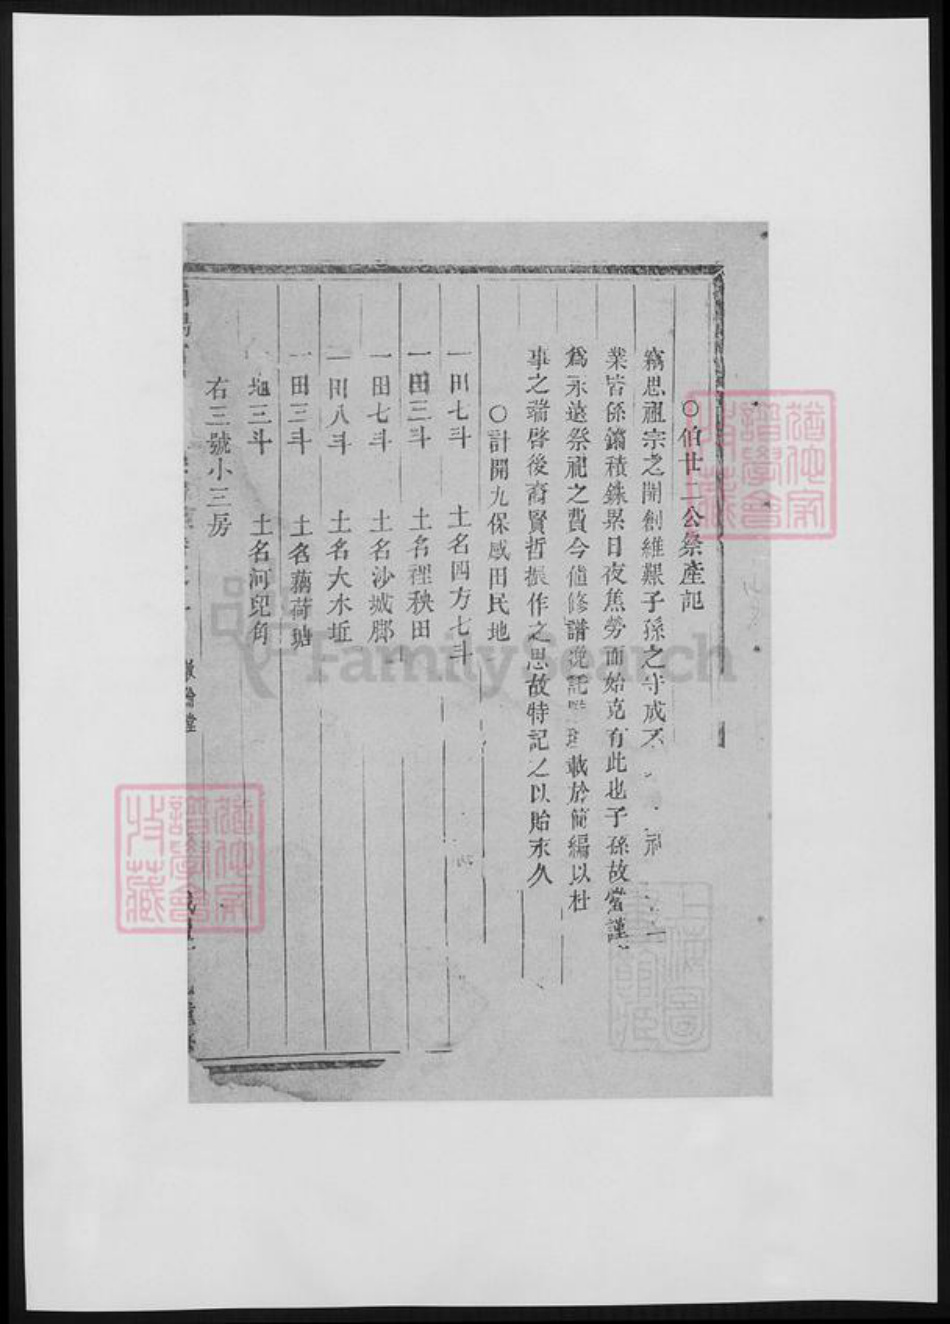 ○伯廿二公祭產記
竊思祖宗之開創維艱子孫之守成不
業皆係鏑積銖累日夜焦勞而始克有此也子孫故當謹
爲永遠祭祀之費今値修譜 託 載於簡編以杜
事之端啓後裔賢哲振作之思故特記之以貽永久
○計開九保咸田民地
一田七斗 土名四方七斗
一田三斗 土名裡秧田
一田七斗 土名沙城腳
一田八斗 土名大木坵
一田三斗 土名藕荷塘
一地三斗 土名河兒角
右三號小三房
猶他家譜學會收藏
猶他家譜學會收藏
上海圖書館
FamilySearch